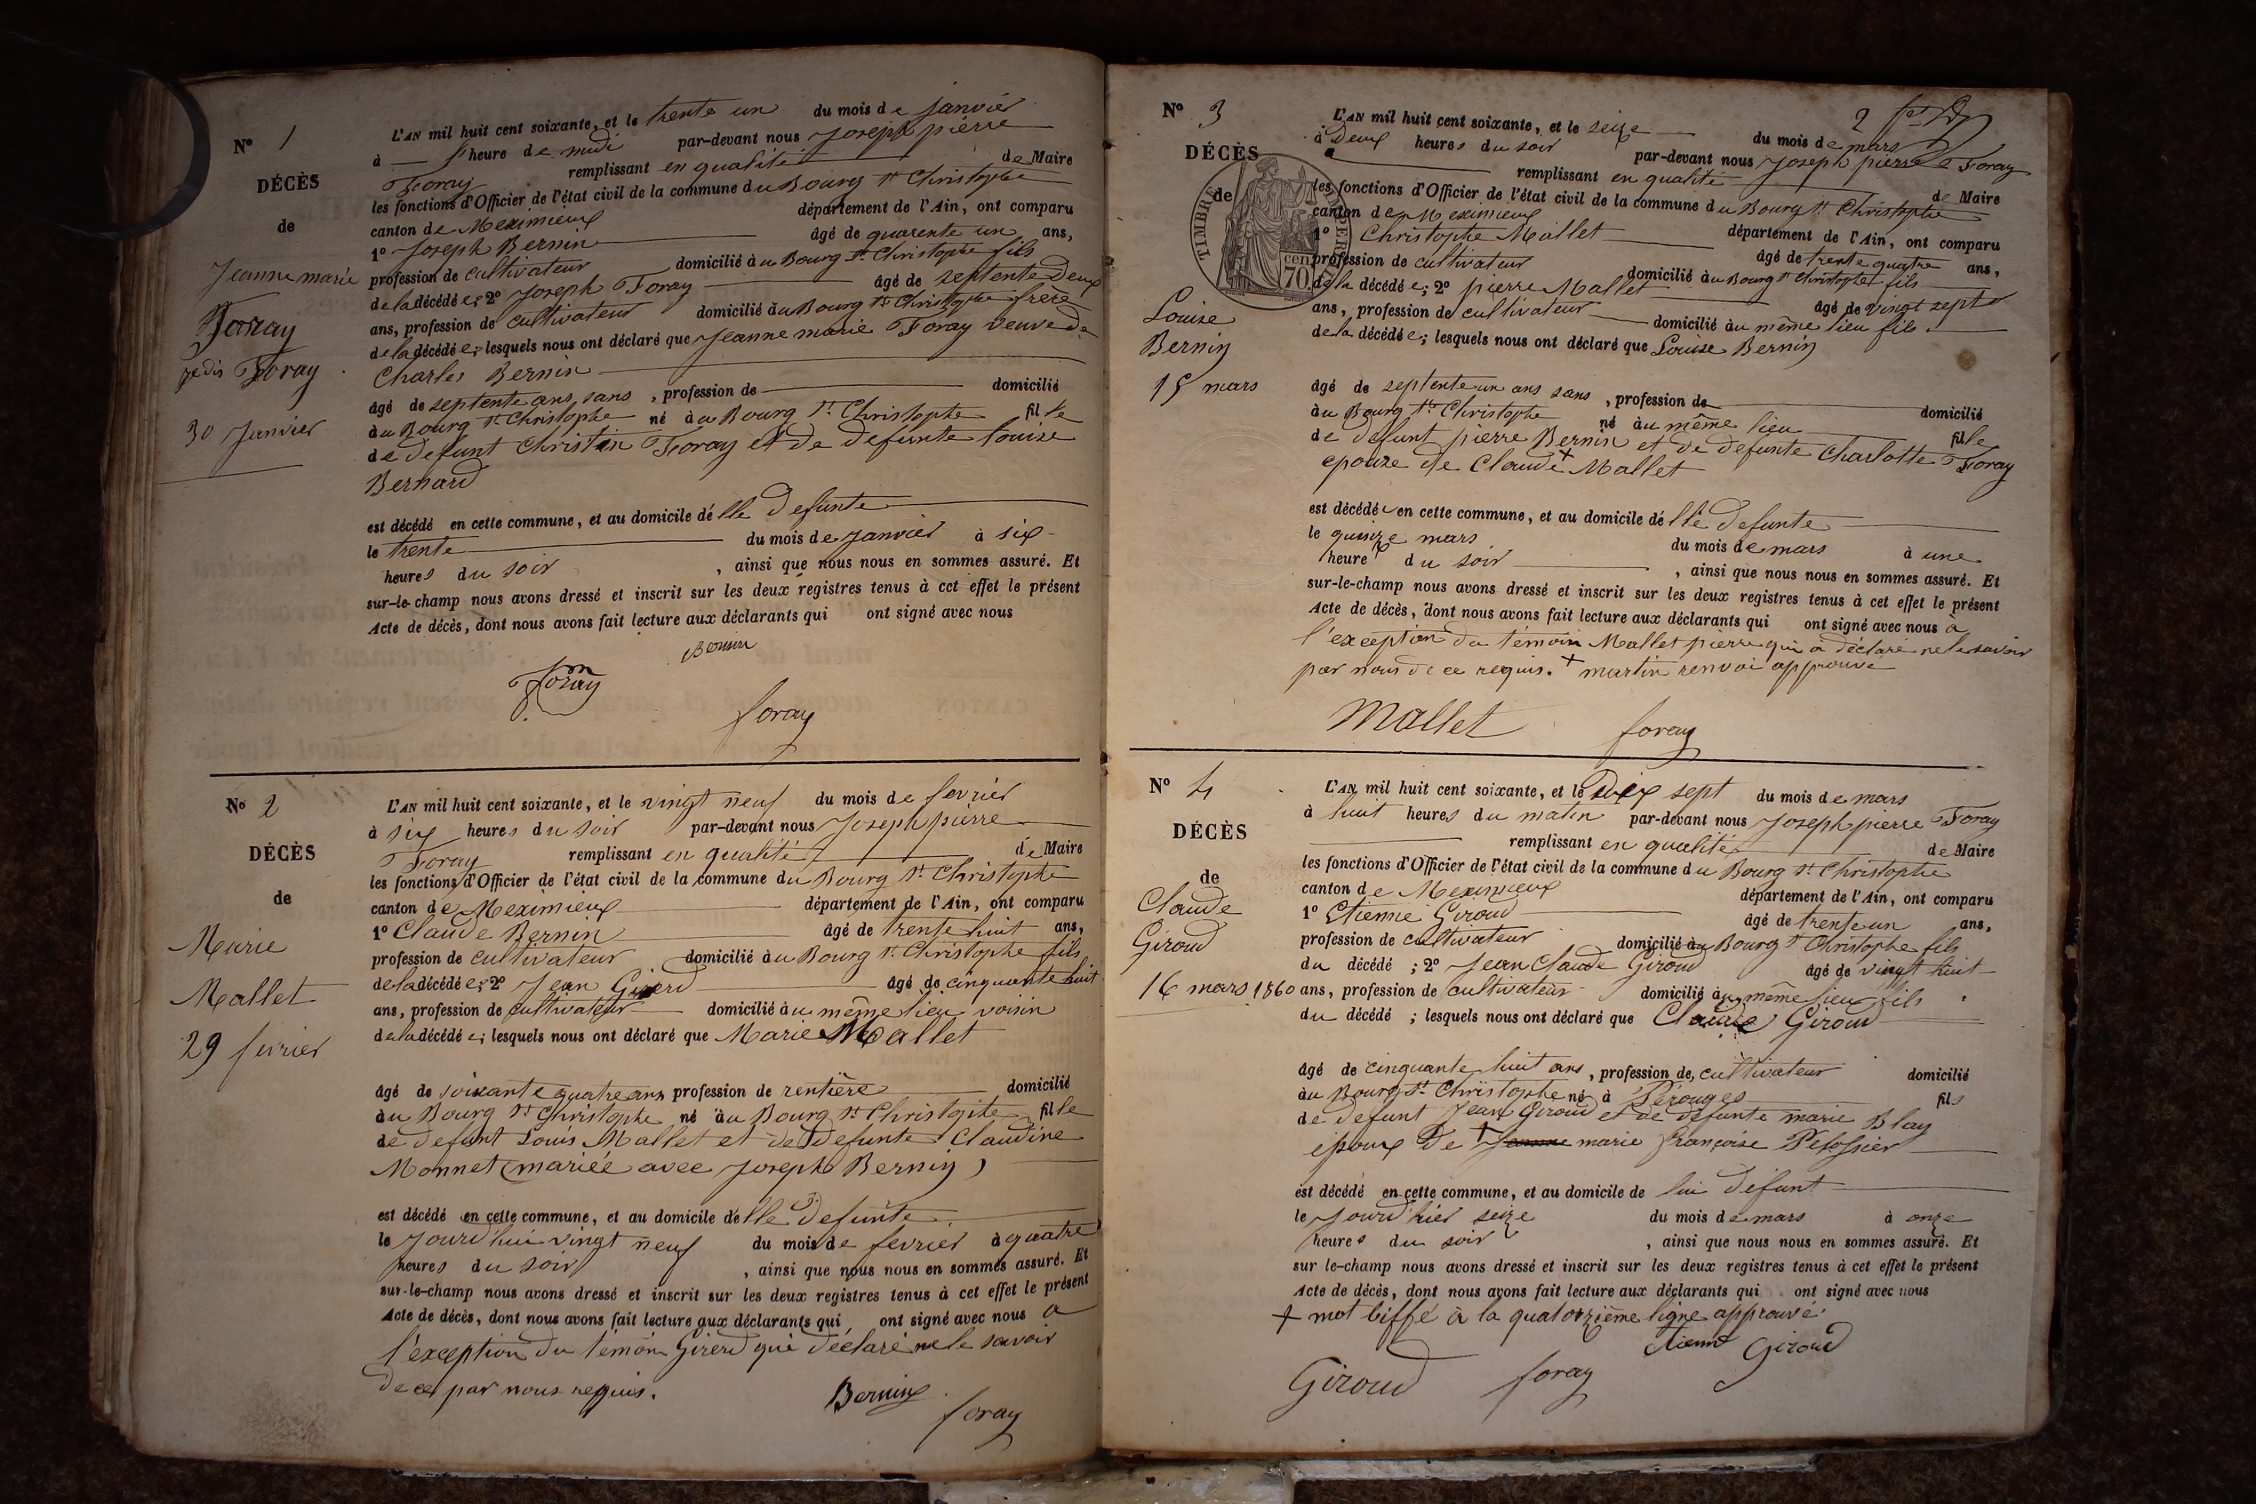 N° 1
DÉCÈS
de
Jeanne marie
Foray
30 Janvier
L'AN mil huit cent soixante, et le trente un du mois de janvier
à heure de midi par-devant nous Joseph pierre
Foray remplissant en qualité de Maire
les fonctions d'Officier de l'état civil de la commune du Bourg St Christophe
canton de Meximieux département de l'Ain, ont comparu
1° Joseph Bernin âgé de quarente un ans,
profession de cultivateur domicilié à u Bourg St Christophe fils
de la décédé e; 2° Joseph Foray âgé de septente deux
ans, profession de cultivateur domicilié à u Bourg St Christophe frère
de la décédé e; lesquels nous ont déclaré que Jeanne marie Foray veuve de
Charles Bernin
âgé de septente ans, sans , profession de domicilié
à u Bourg St Christophe né à u Bourg St Christophe fil le
de defunt Christin Foray et de defunte louise
Bernard
est décédé en cette commune, et au domicile de lle Defunte
le trente du mois de janvier à six
heures du soir , ainsi que nous nous en sommes assuré. Et
sur-le-champ nous avons dressé et inscrit sur les deux régistres tenus à cet effet le présent
Acte de décès, dont nous avons fait lecture aux déclarants qui ont signé avec nous
Bernin
Foray
foray
N° 2
DÉCÈS
de
Marie
Mallet
29 fevrier
L'AN mil huit cent soixante, et le vingt neuf du mois de fevrier
à six heures du soir par-devant nous Joseph pierre
Foray remplissant en qualité de Maire
les fonctions d'Officier de l'état civil de la commune du Bourg St Christophe
canton de Meximieux département de l'Ain, ont comparu
1° Claude Bernin âgé de trente huit ans,
profession de cultivateur domicilié à u Bourg St Christophe fils
de la décédé e; 2° Jean Girerd âgé de cinquante huit
ans, profession de cultivateur domicilié à u même lieu voisin
de la décédé e; lesquels nous ont déclaré que Marie Mallet
âgé de soixante quatre ans profession de rentière domicilié
à u Bourg St Christophe né à u Bourg St Christophe fil le
de defunt Louis Mallet et de Defunte Claudine
Monnet (mariée avec Joseph Bernin)
est décédé en cette commune, et au domicile de lle Defunte
le Jourd'hui vingt neuf du mois de fevrier à quatre
heures du soir , ainsi que nous nous en sommes assuré. Et
sur-le-champ nous avons dressé et inscrit sur les deux registres tenus à cet effet le présent
Acte de décès, dont nous avons fait lecture aux déclarants qui ont signé avec nous a
l'exception du témoin Girerd qui déclaré ne le savoir
de ce par nous requis.
Bernin
foray
2
N° 3
DÉCÈS
de
TIMBRE IMPERIAL
70 cen
Louise
Bernin
15 mars
L'AN mil huit cent soixante, et le seize du mois de mars
à Deux heures du soir par-devant nous Joseph pierre Foray
remplissant en qualité de Maire
les fonctions d'Officier de l'état civil de la commune du Bourg St Christophe
canton de Meximieux département de l'Ain, ont comparu
1° Christophe Mallet âgé de trente quatre ans,
profession de cultivateur domicilié à u Bourg St Christophe fils
de la décédé e; 2° pierre Mallet âgé de vingt sept
ans, profession de cultivateur domicilié à u même lieu fils
de la décédé e; lesquels nous ont déclaré que Louise Bernin
âgé de septente un ans sans , profession de domicilié
à u Bourg St Christophe né à u même lieu fil le
de defunt pierre Bernin et de defunte Charlotte Foray
epouze de Claude + Mallet
est décédé e en cette commune, et au domicile de lle defunte
le quinze mars du mois de mars à une
heure du soir , ainsi que nous nous en sommes assuré. Et
sur-le-champ nous avons dressé et inscrit sur les deux registres tenus à cet effet le présent
Acte de décès, dont nous avons fait lecture aux déclarants qui ont signé avec nous à
l'exception du témoin Mallet pierre qui a déclaré ne le savoir
par nous de ce requis. + martin renvoi approuvé
Mallet
foray
N° 4
DÉCÈS
de
Claude
Giroud
16 mars 1860
L'AN mil huit cent soixante, et le Dix sept du mois de mars
à huit heures du matin par-devant nous Joseph pierre Foray
remplissant en qualité de Maire
les fonctions d'Officier de l'état civil de la commune du Bourg St Christophe
canton de Meximieux département de l'Ain, ont comparu
1° Etienne Giroud âgé de trente un ans,
profession de cultivateur domicilié à u Bourg St Christophe fils
du décédé ; 2° Jean Claude Giroud âgé de vingt huit
ans, profession de cultivateur domicilié à u même lieu fils
du décédé ; lesquels nous ont déclaré que Claude Giroud
âgé de cinquante huit ans , profession de, cultivateur domicilié
à u Bourg St Christophe né à Pérouges fils
de defunt Jean Giroud et de defunte marie Blay
époux de + Jeanne marie françoise Pelossier
est décédé en cette commune, et au domicile de lui défunt
le Jourd'hier seize du mois de mars à onze
heures du soir , ainsi que nous nous en sommes assuré. Et
sur le-champ nous avons dressé et inscrit sur les deux registres tenus à cet effet le présent
Acte de décès, dont nous avons fait lecture aux déclarants qui ont signé avec nous
+ mot biffé à la quatorzième ligne approuvé.
Etienne Giroud
Giroud
foray